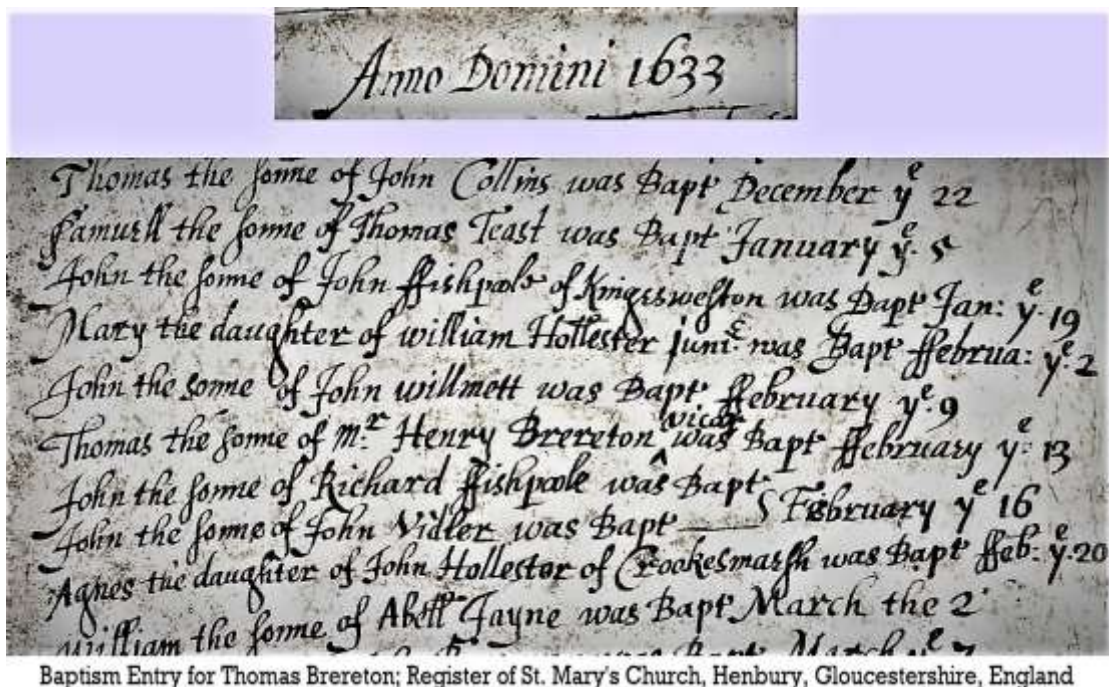 Anno Domini 1633
Thomas the sonne of John Collins was Bapt December yᵉ 22
Samuell the sonne of Thomas Teast was Bapt January yᵉ. 5
John the sonne of John ffishpoole of Kingsweston was Bapt Jan: yᵉ. 19
Mary the daughter of william Hollester junⁱ. was Bapt ffebrua: yᵉ. 2
John the sonne of John willmett was Bapt ffebruary yᵉ. 9
Thomas the sonne of mʳ. Henry Brereton vicar was Bapt ffebruary yᵉ: 13
John the sonne of Richard ffishpoole was Bapt
John the sonne of John Vidler was Bapt February yᵉ 16
Agnes the daughter of John Hollester of Crookesmarsh was Bapt ffeb: yᵉ. 20
William the sonne of Abell Jayne was Bapt March the 2
Bapt March yᵉ
Baptism Entry for Thomas Brereton; Register of St. Mary's Church, Henbury, Gloucestershire, England